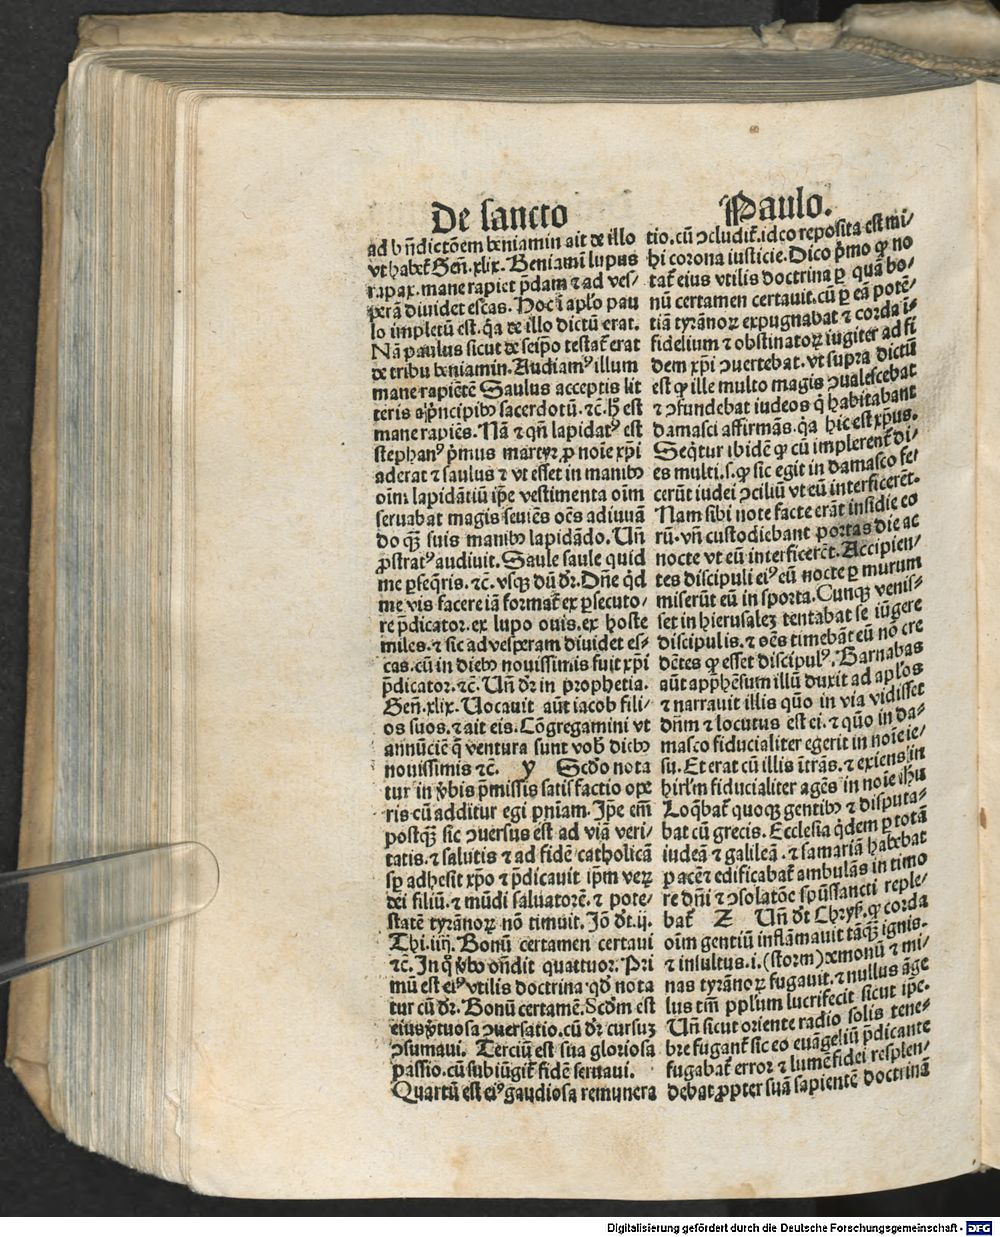 De sancto
ad bn̄dictōem beniamin ait de illo
vt habet᷑ Gen̄. xlix. Beniamī lupus
rapax. mane rapiet p̄dam ⁊ ad ves/
perā diuidet escas. Hoc ī apl'o pau
lo impletū est. q̄a de illo dictū erat.
Nā paulus sicut de seip̄o testat᷑ erat
de tribu beniamin. Audiamꝰ illum
mane rapiētē Saulus acceptis lit
teris a p̄ncipibꝰ sacerdotū. ⁊c. h̄ est
mane rapiēs. Nā ⁊ qn̄ lapidatꝰ est
stephanꝰ p̄mus martyr ꝓ noīe xp̄i
aderat ⁊ saulus ⁊ vt esset in manibꝰ
oīm lapidātiū ip̄e vestimenta oīm
seruabat magis seuiēs oēs adiuuā
do qȝ suis manibꝰ lapidādo. Un̄
ꝓstratꝰ audiuit. Saule saule quid
me ꝑseq̄ris. ⁊c. vsqȝ dū dr̄. Dn̄e q̇d
me vis facere iā format᷑ ex ꝑsecuto/
re p̄dicator. ex lupo ouis. ex hoste
miles. ⁊ sic ad vesperam diuidet es/
cas. cū in diebꝰ nouissimis fuit xp̄i
p̄dicator. ⁊c. Un̄ dr̄ in prophetia.
Gen̄. xlix. Uocauit aūt iacob fili/
os suos. ⁊ ait eis. Cōgregamini vt
annūciē q̄ ventura sunt vob̄ diebꝰ
nouissimis ⁊c. y Scd̄o nota
tur in v̄bis p̄missis satisfactio ope
ris cū additur egi pn̄iam. Ip̄e em̄
postqȝ sic ↄuersus est ad viā veri/
tatis. ⁊ salutis ⁊ ad fidē catholicā
sp̄ adhesit xp̄o ⁊ p̄dicauit ip̄m veꝝ
dei filiū. ⁊ mūdi saluatorē. ⁊ pote/
statē tyrānoꝝ nō timuit. Jō dt̄. ij.
Thi. iiij. Bonū certamen certaui
⁊c. In q̇ v̄bo on̄dit quattuor. Pri
mū est eiꝰ vtilis doctrina qd̄ nota
tur cū dr̄. Bonū certamē. Scd̄m est
eius v̄tuosa ↄuersatio. cū dr̄ cursuȝ
ↄsumaui. Terciū est sua gloriosa
passio. cū subiūgit᷑ fidē seruaui.
Quartū est eiꝰ gaudiosa remunera
Paulo.
tio. cū ↄcludit᷑. ideo reposita est mi/
hi corona iusticie. Dico p̄mo ꝙ no
tat᷑ eius vtilis doctrina ꝑ quā bo/
nū certamen certauit. cū ꝑ eā potē/
tiā tyrānoꝝ expugnabat ⁊ corda ī/
fidelium ⁊ obstinatoꝝ iugiter ad fi
dem xp̄i ↄuertebat. vt supra dictū
est ꝙ ille multo magis ↄualescebat
⁊ ↄfundebat iudeos q̇ habitabant
damasci affirmās. q̄a hic est xp̄us.
Seqt᷑ur ibidē ꝙ cū implerent᷑ di/
es multi. s. ꝙ sic egit in damasco fe/
cerūt iudei ↄciliū vt eū interficerēt.
Nam sibi note facte erāt insidie eo
rū. vn̄ custodiebant portas die ac
nocte vt eū interficerēt. Accipien/
tes discipuli eiꝰ eū nocte ꝑ murum
miserūt eū in sporta. Cunqȝ venis/
set in hierusalez tentabat se iūgere
discipulis. ⁊ oēs timebāt eū nō cre
dētes ꝙ esset discipulꝰ. Barnabas
aūt app̄hēsum illū duxit ad apl'os
⁊ narrauit illis quō in via vidisset
dn̄m ⁊ locutus est ei. ⁊ quō in da/
masco fiducialiter egerit in noīe ie/
su. Et erat cū illis ītrās. ⁊ exiens in
hirl'm fiducialiter agēs in noīe ih̄u
Loq̄bat᷑ quoqȝ gentibꝰ ⁊ disputa/
bat cū grecis. Ecclesia q̇dem ꝑ totā
iudeā ⁊ galileā. ⁊ samariā habebat
pacē ⁊ edificabat᷑ ambulās in timo
re dn̄i ⁊ ↄsolatōe sp̄ussancti reple/
bat᷑ Z Un̄ dt̄ Chrys̄. ꝙ corda
oīm gentiū inflāmauit tāqȝ ignis.
⁊ insultus. i. (storm) demonū ⁊ mi/
nas tyrānoꝝ fugauit. ⁊ nullus āge
lus tm̄ ppl'um lucrifecit sicut ip̄e.
Un̄ sicut oriente radio solis tene/
bre fugant᷑ sic eo euāgeliū p̄dicante
fugabat᷑ error ⁊ lumē fidei resplen/
debat ꝓpter suā sapientē doctrinā
Digitalisierung gefördert durch die Deutsche Forschungsgemeinschaft - DFG